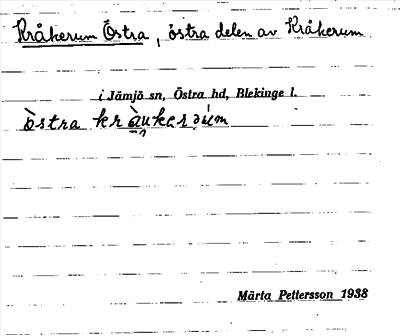 Kråkerum Östra, östra delen av Kråkerum
i Jämjö sn, Östra hd, Blekinge l.
Märta Pettersson 1938